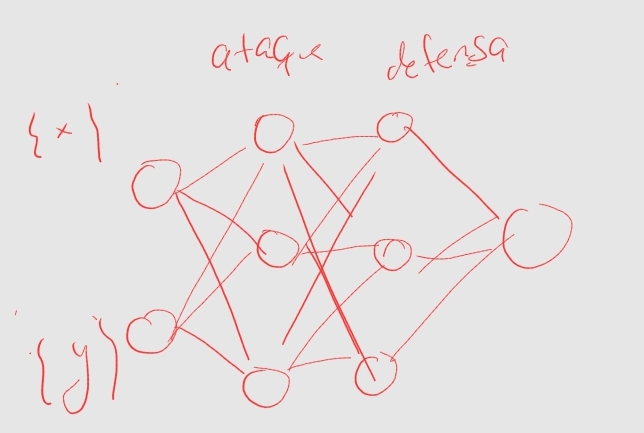 ataque defensa
{x}
{y}